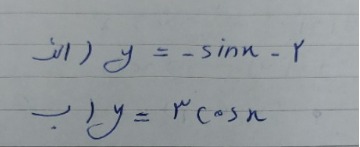 الف) y = -sinx - ۲
ب) y = ۳cosx